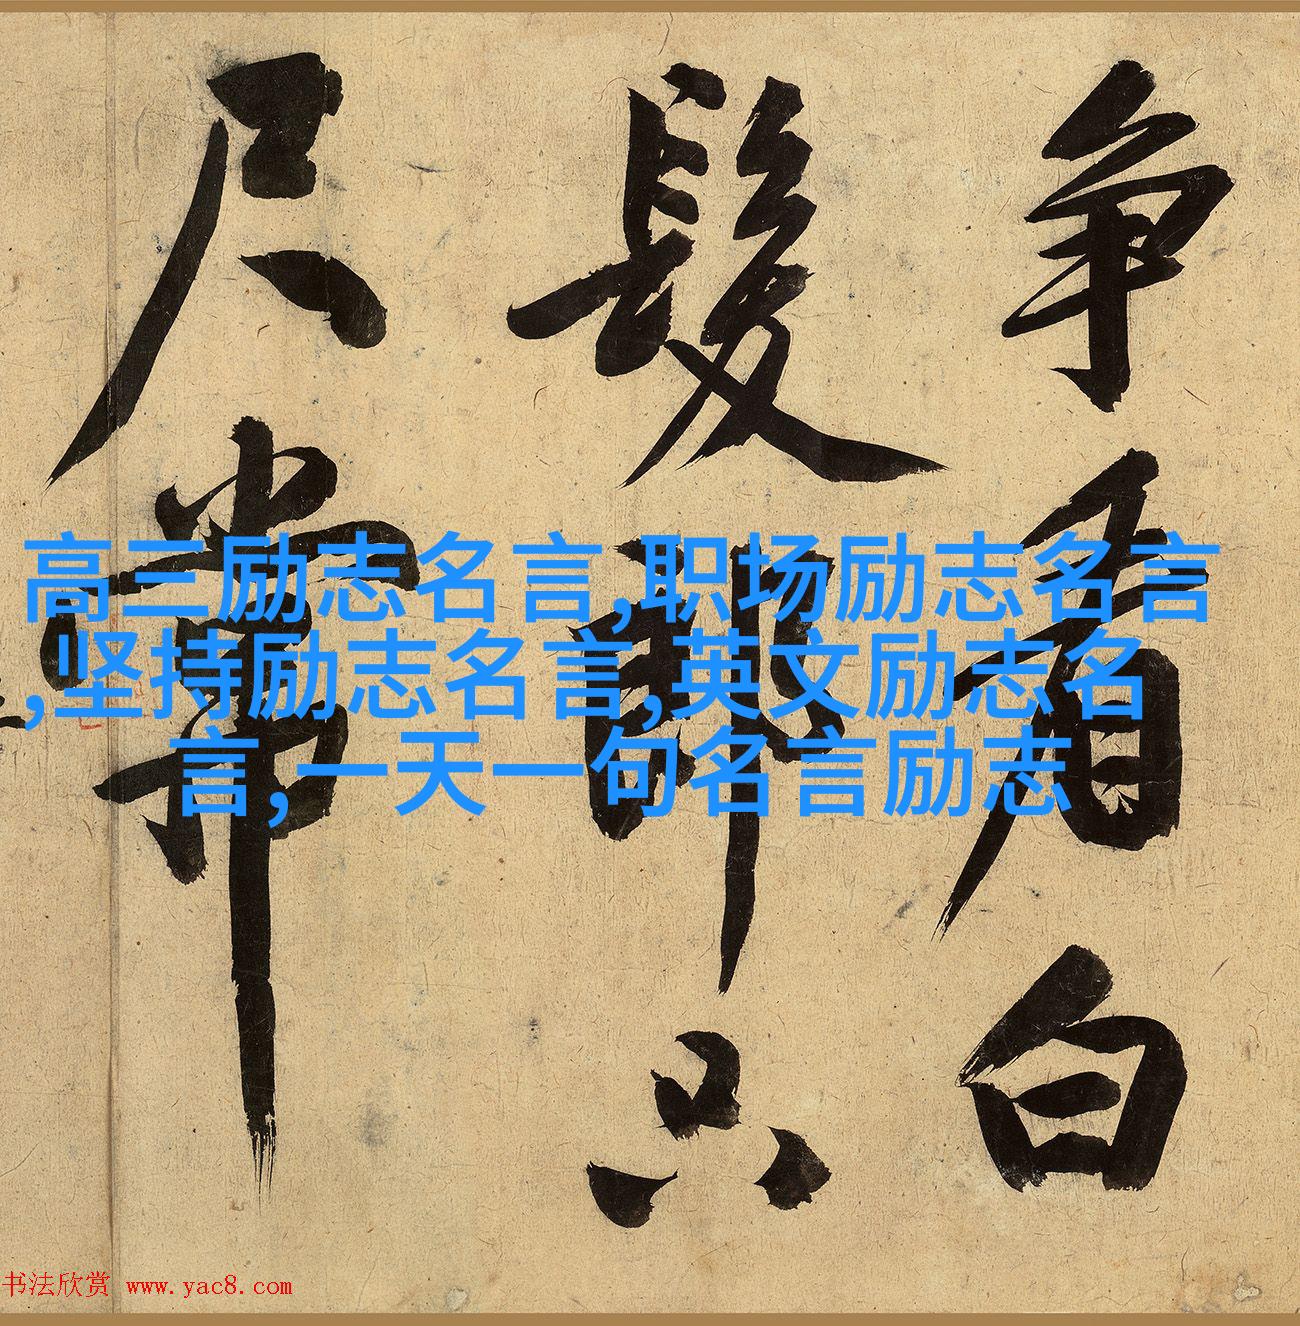 争看白
髮郎只
尺常
高三励志名言,职场励志名言
,坚持励志名言,英文励志名
言，一天一句名言励志
书法欣赏 www.yac8.com